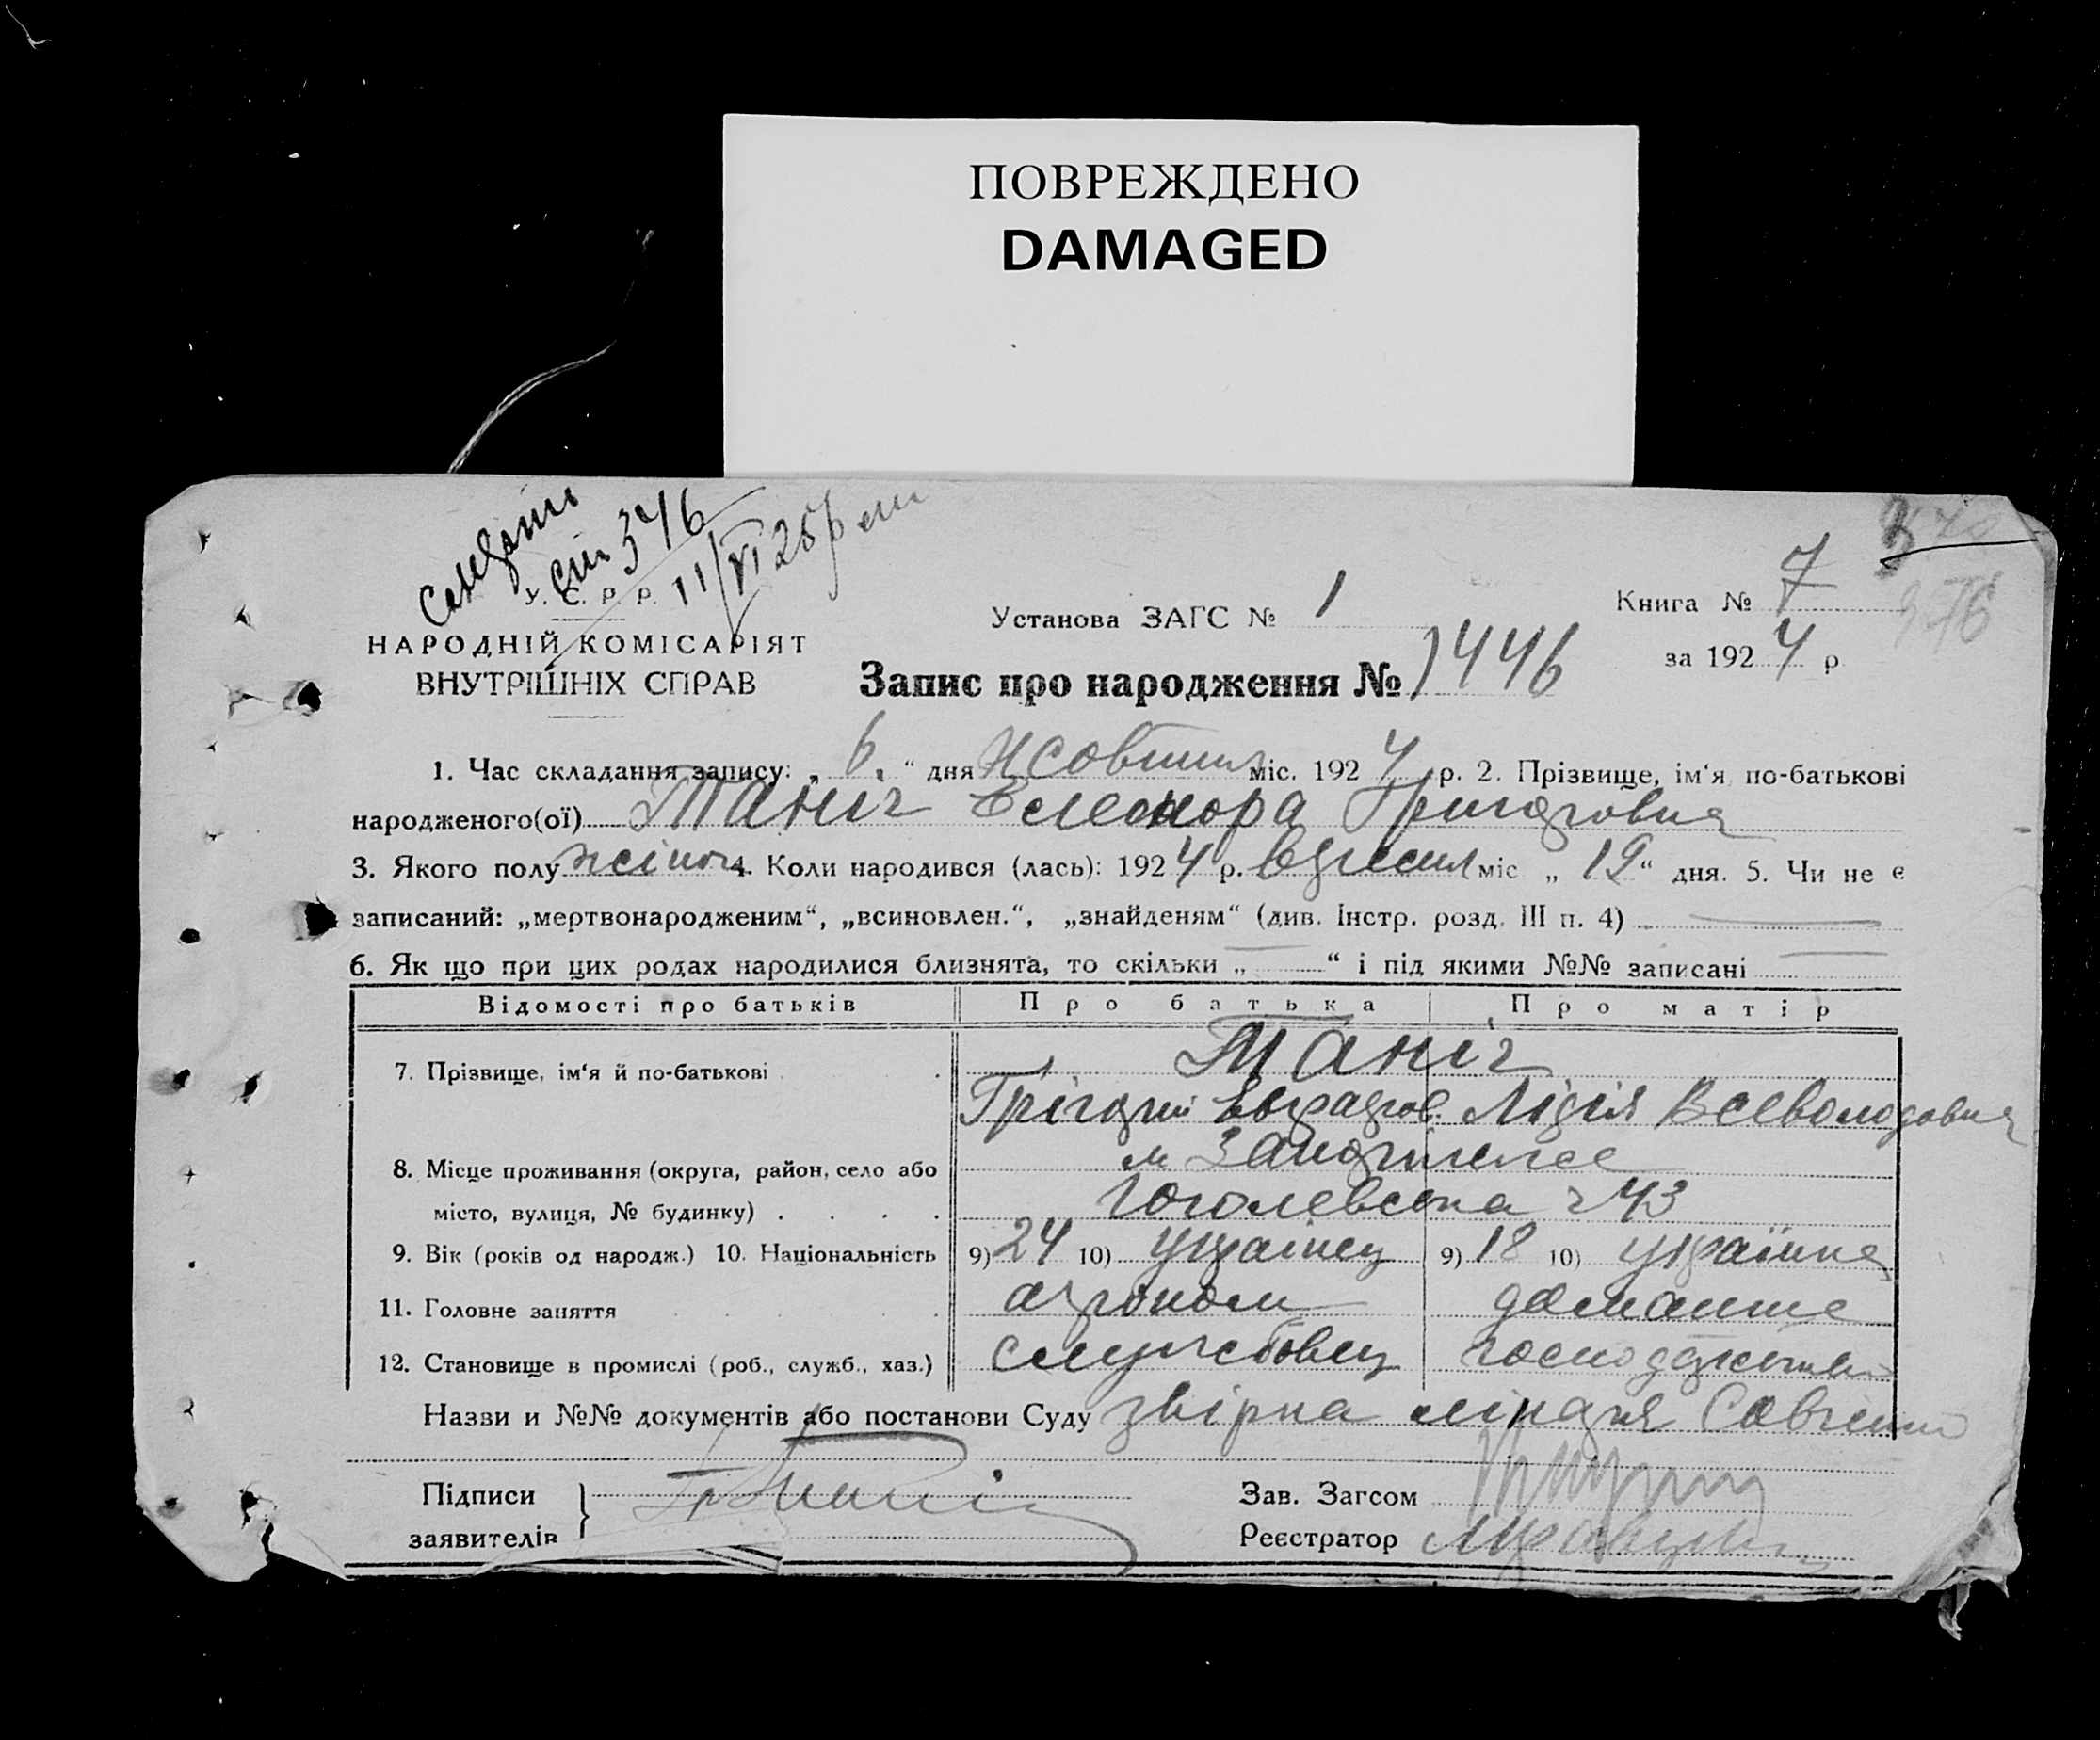 ПОВРЕЖДЕНО
DAMAGED
У. С. Р. Р.
НАРОДНІЙ КОМІСАРІЯТ
ВНУТРІШНІХ СПРАВ
Установа ЗАГС № 1
Книга № 7
за 1924 р
376
Запис про народження № 1446
1. Час складання запису: „ 6. “ дня Жовтня міс. 1924 р. 2. Прізвище, ім‘я, по-батькові
народженого(ої) Таніч Елеонора Григоровна
3. Якого полу жіноч. 4. Коли народився (лась): 1924 р. вересня міс „ 19 “ дня. 5. Чи не є
записаний: „мертвонародженим“, „всиновлен.“, „знайденям“ (див. Інстр. розд. III п. 4)
6. Як що при цих родах народилися близнята, то скільки „ “ і під якими №№ записані
Відомості про батьків Про батька Про матір
7. Прізвище, ім‘я й по-батькові Таніч
Грігорий Лідія Всеволодовна
8. Місце проживання (округа, район, село або м Запоріжжє
місто, вулиця, № будинку) Гоголевська 43
9. Вік (років од народж.) 10. Національність 9) 24 10) українец 9) 18 10) українка
11. Головне заняття агроном домашнє
12. Становище в промислі (роб., служб., хаз.) службовец господарство
Назви и №№ документів або постанови Суду
Підписи
заявителів
Зав. Загсом
Реєстратор